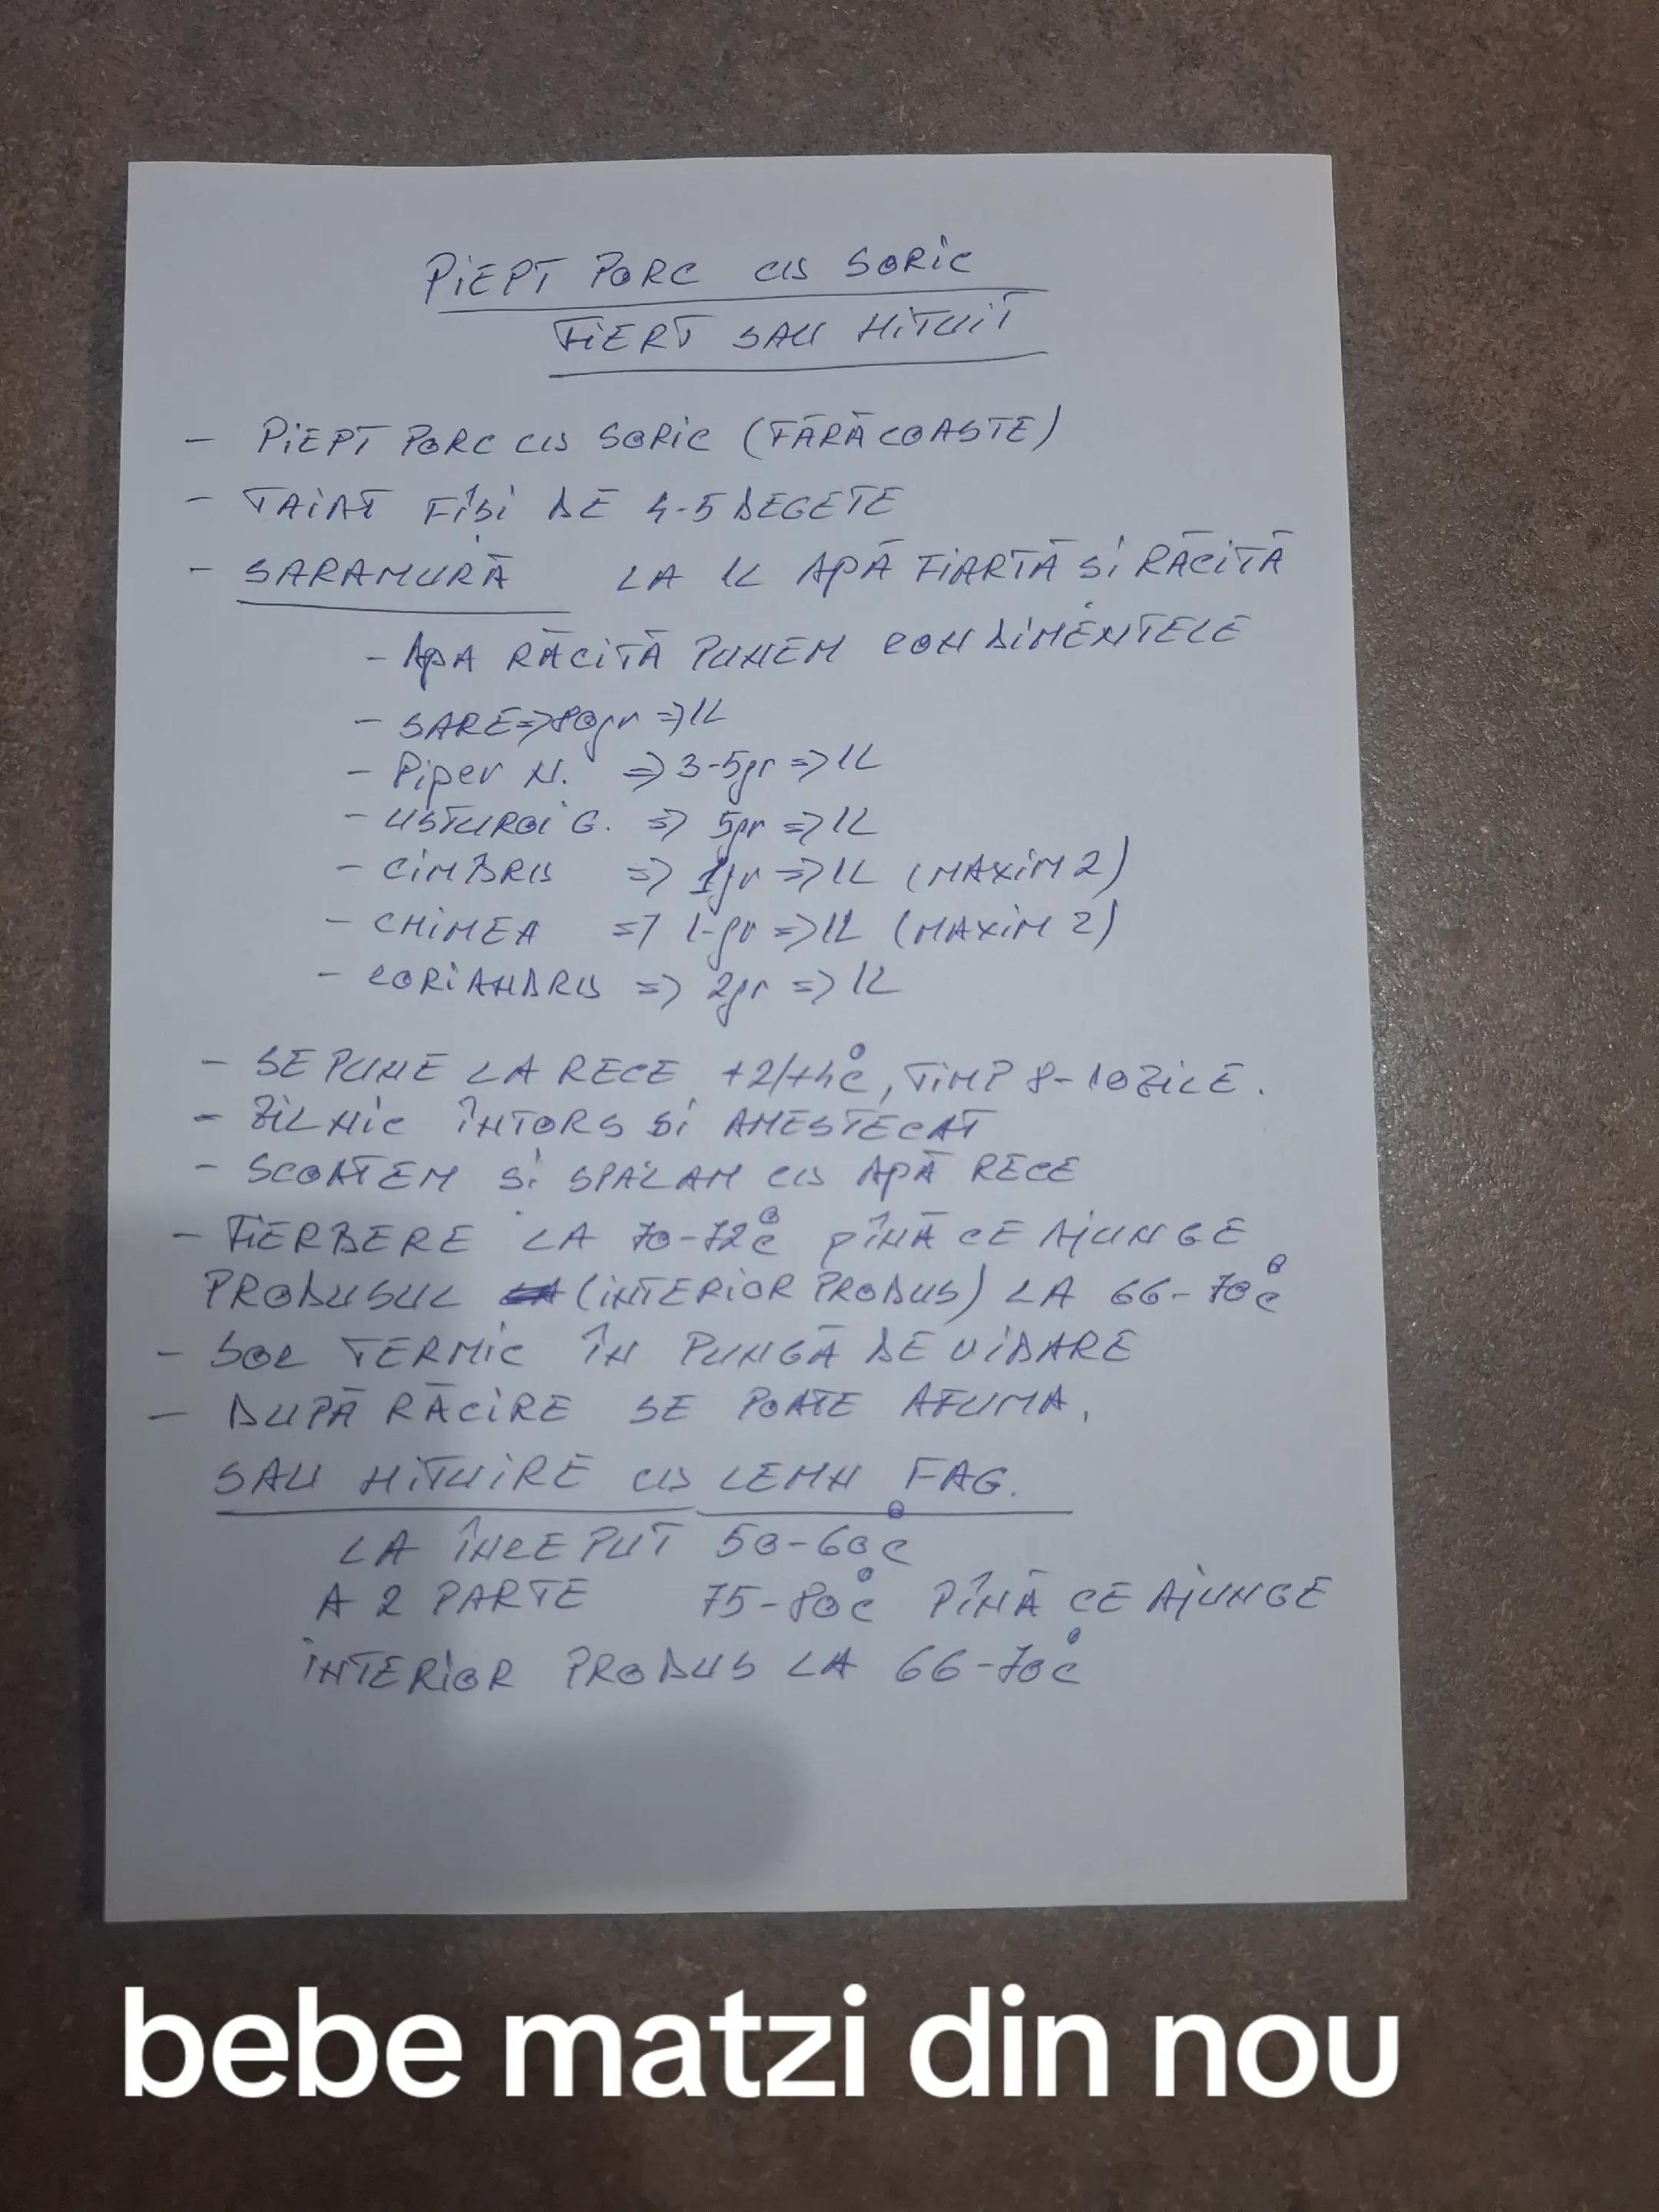 PIEPT PORC CU SORIC
FIERT SAU HITUIT
- PIEPT PORC CU SORIC (FĂRĂ COASTE)
- TAIAT FÎSI DE 4-5 DEGETE
- SARAMURĂ LA 1L APĂ FIARTĂ SI RĂCITĂ
- APA RĂCITĂ PUNEM CONDIMENTELE
- SARE => 80gr => 1L
- Piper N. => 3-5gr => 1L
- USTUROI G. => 5gr => 1L
- CIMBRU => 1gr => 1L (MAXIM 2)
- CHIMEA => 1-gr => 1L (MAXIM 2)
- CORIANDRU => 2gr => 1L
- SE PUNE LA RECE +2/+4°C, TIMP 8-10 ZILE.
- ZILNIC ÎNTORS SI AMESTECAT
- SCOATEM SI SPĂLAM CU APĂ RECE
- FIERBERE LA 70-72°C PÎNĂ CE AJUNGE
PRODUSUL (INTERIOR PRODUS) LA 66-70°C
- SOC TERMIC ÎN PUNGĂ DE VIDARE
- DUPĂ RĂCIRE SE POATE AFUMA,
SAU HITUIRE CU LEMN FAG.
LA ÎNCEPUT 50-60°C
A 2 PARTE 75-80°C PÎNĂ CE AJUNGE
INTERIOR PRODUS LA 66-70°C
bebe matzi din nou